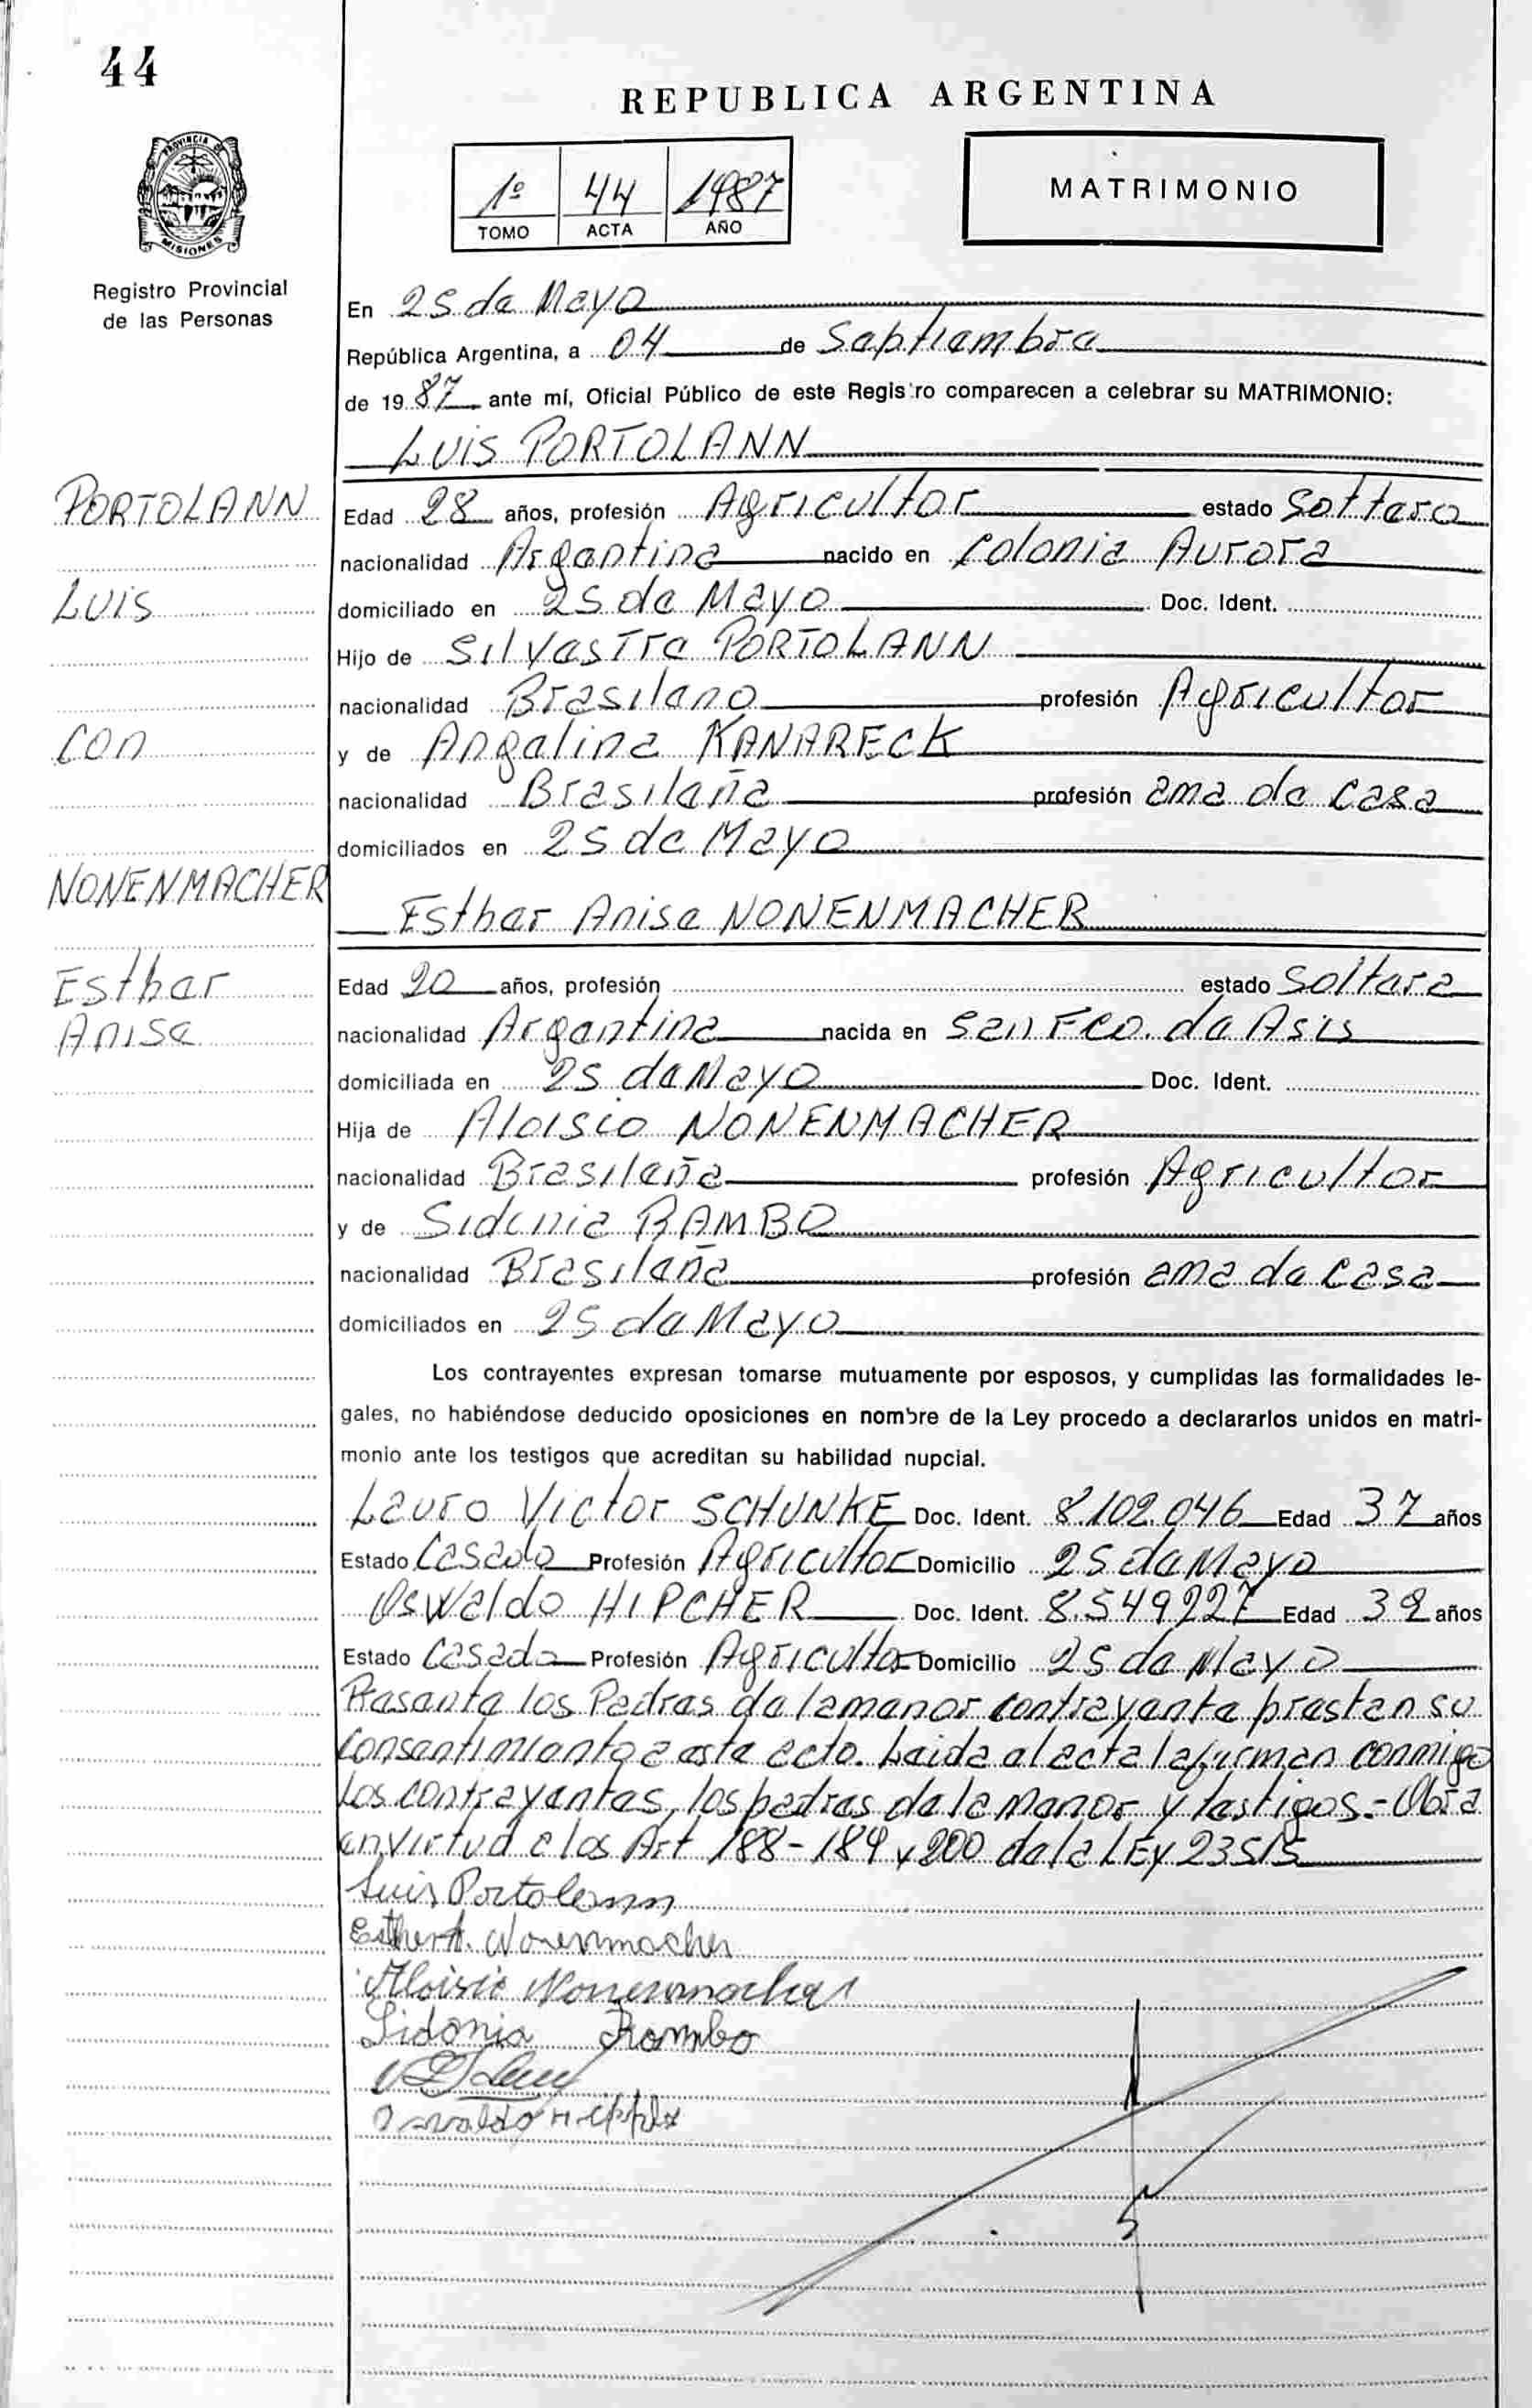 44
REPUBLICA ARGENTINA
PROVINCIA DE
MISIONES
1º 44 1987
TOMO ACTA AÑO
MATRIMONIO
Registro Provincial
de las Personas
En 25 de Mayo
República Argentina, a 04 de Septiembre
de 19 87 ante mí, Oficial Público de este Registro comparecen a celebrar su MATRIMONIO:
LUIS PORTOLANN
PORTOLANN
Edad 28 años, profesión Agricultor estado Soltero
nacionalidad Argentina nacido en Colonia Aurora
LUIS
domiciliado en 25 de Mayo Doc. Ident.
Hijo de Silvestre PORTOLANN
nacionalidad Brasileno profesión Agricultor
con
y de Angelina KANARECK
nacionalidad Brasileña profesión ama de casa
domiciliados en 25 de Mayo
NONENMACHER
Esther Anise NONENMACHER
Esther
Edad 20 años, profesión estado Soltera
Anise
nacionalidad Argentina nacida en San Fco. de Asis
domiciliada en 25 de Mayo Doc. Ident.
Hija de Aloisio NONENMACHER
nacionalidad Brasileña profesión Agricultor
y de Sidonia RAMBO
nacionalidad Brasileña profesión ama de casa
domiciliados en 25 de Mayo
Los contrayentes expresan tomarse mutuamente por esposos, y cumplidas las formalidades le-
gales, no habiéndose deducido oposiciones en nombre de la Ley procedo a declararlos unidos en matri-
monio ante los testigos que acreditan su habilidad nupcial.
Lauro Victor SCHUNKE Doc. Ident. 8.102.046 Edad 37 años
Estado Casado Profesión Agricultor Domicilio 25 de Mayo
Oswaldo HIPCHER Doc. Ident. 8.549227 Edad 32 años
Estado Casado Profesión Agricultor Domicilio 25 de Mayo
Presente los Padres de la menor contrayente prestan su
Consentimiento a este acto. Leida el acta la firman conmigo
los contrayentes, los padres de la menor y testigos.- Obra
en virtud a los Art 188-189 y 200 de la LEY 23515
Luis Portolann
Esther A. Nonenmacher
Aloisio Nonenmacher
Sidonia Rambo
Osvaldo